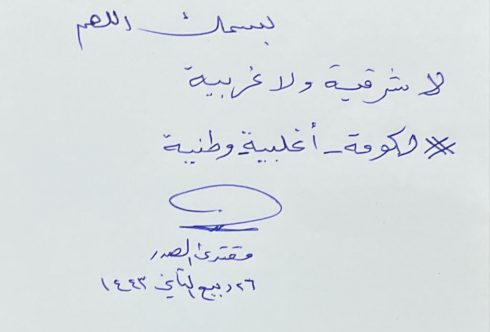 بسمك اللهم
لا شرقية ولا غربية
* حكومة - أغلبية وطنية
مقتدى الصدر
٢٦ ربيع الثاني ١٤٤٣